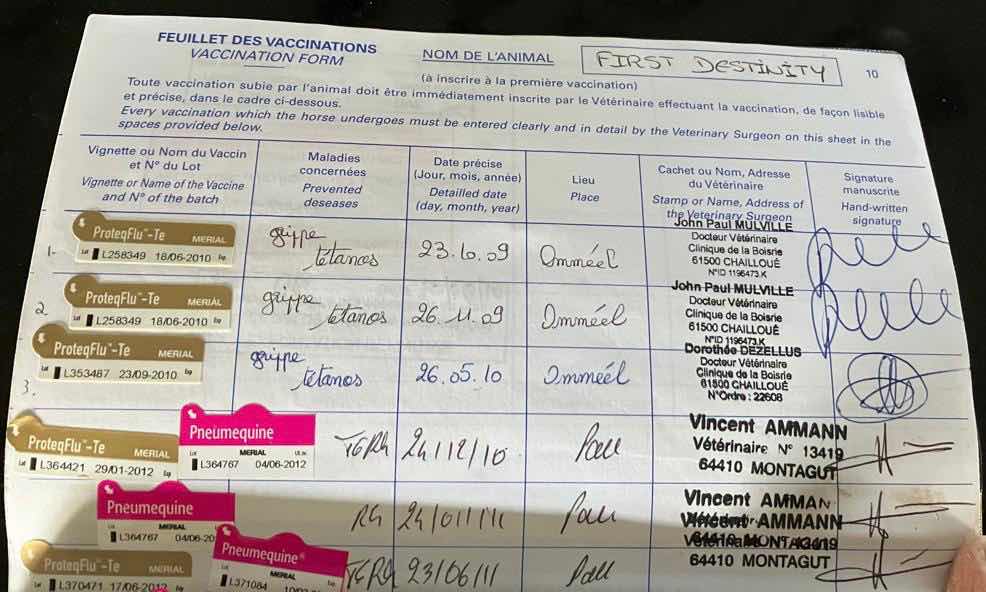 FEUILLET DES VACCINATIONS
VACCINATION FORM
NOM DE L'ANIMAL
FIRST DESTINITY
10
(à inscrire à la première vaccination)
Toute vaccination subie par l'animal doit être immédiatement inscrite par le Vétérinaire effectuant la vaccination, de façon lisible
et précise, dans le cadre ci-dessous.
Every vaccination which the horse undergoes must be entered clearly and in detail by the Veterinary Surgeon on this sheet in the
spaces provided below.
Vignette ou Nom du Vaccin
et N° du Lot
Vignette or Name of the Vaccine
and N° of the batch
Maladies
concernées
Prevented
deseases
Date précise
(Jour, mois, année)
Detailled date
(day, month, year)
Lieu
Place
Cachet ou Nom, Adresse
du Vétérinaire
Stamp or Name, Address of
the Veterinary Surgeon
Signature
manuscrite
Hand-written
signature
1-
ProteqFlu™-Te
MERIAL
Lot L258349 18/06/2010 Exp
grippe
tétanos
23.10.09
Omméel
John Paul MULVILLE
Docteur Vétérinaire
Clinique de la Boisrie
61500 CHAILLOUÉ
N°ID 1196473.K
2
ProteqFlu™-Te
MERIAL
Lot L258349 18/06/2010 Exp
grippe
tétanos
26.11.09
Omméel
John Paul MULVILLE
Docteur Vétérinaire
Clinique de la Boisrie
61500 CHAILLOUÉ
N°ID 1196473.K
3.
ProteqFlu™-Te
MERIAL
Lot L353487 23/09/2010 Exp
grippe
tétanos
26.05.10
Omméel
Dorothée DEZELLUS
Docteur Vétérinaire
Clinique de la Boisrie
61500 CHAILLOUÉ
N°Ordre : 22608
ProteqFlu™-Te
MERIAL
Lot L364421 29/01/2012 Exp
Pneumequine
MERIAL
Lot L364767 04/06/2012
TGRh
24/12/10
Pau
Vincent AMMANN
Vétérinaire N° 13419
64410 MONTAGUT
Pneumequine
MERIAL
Lot L364767 04/06/20
Rh
24/01/11
Pau
Vincent AMMAN
ProteqFlu™-Te
MERIAL
Lot L370471 17/06/2012 Exp
Pneumequine®
MERIAL
Lot L371084
TGRh
23/06/11
Pau
Vincent AMMANN
64410 MONTAGUT